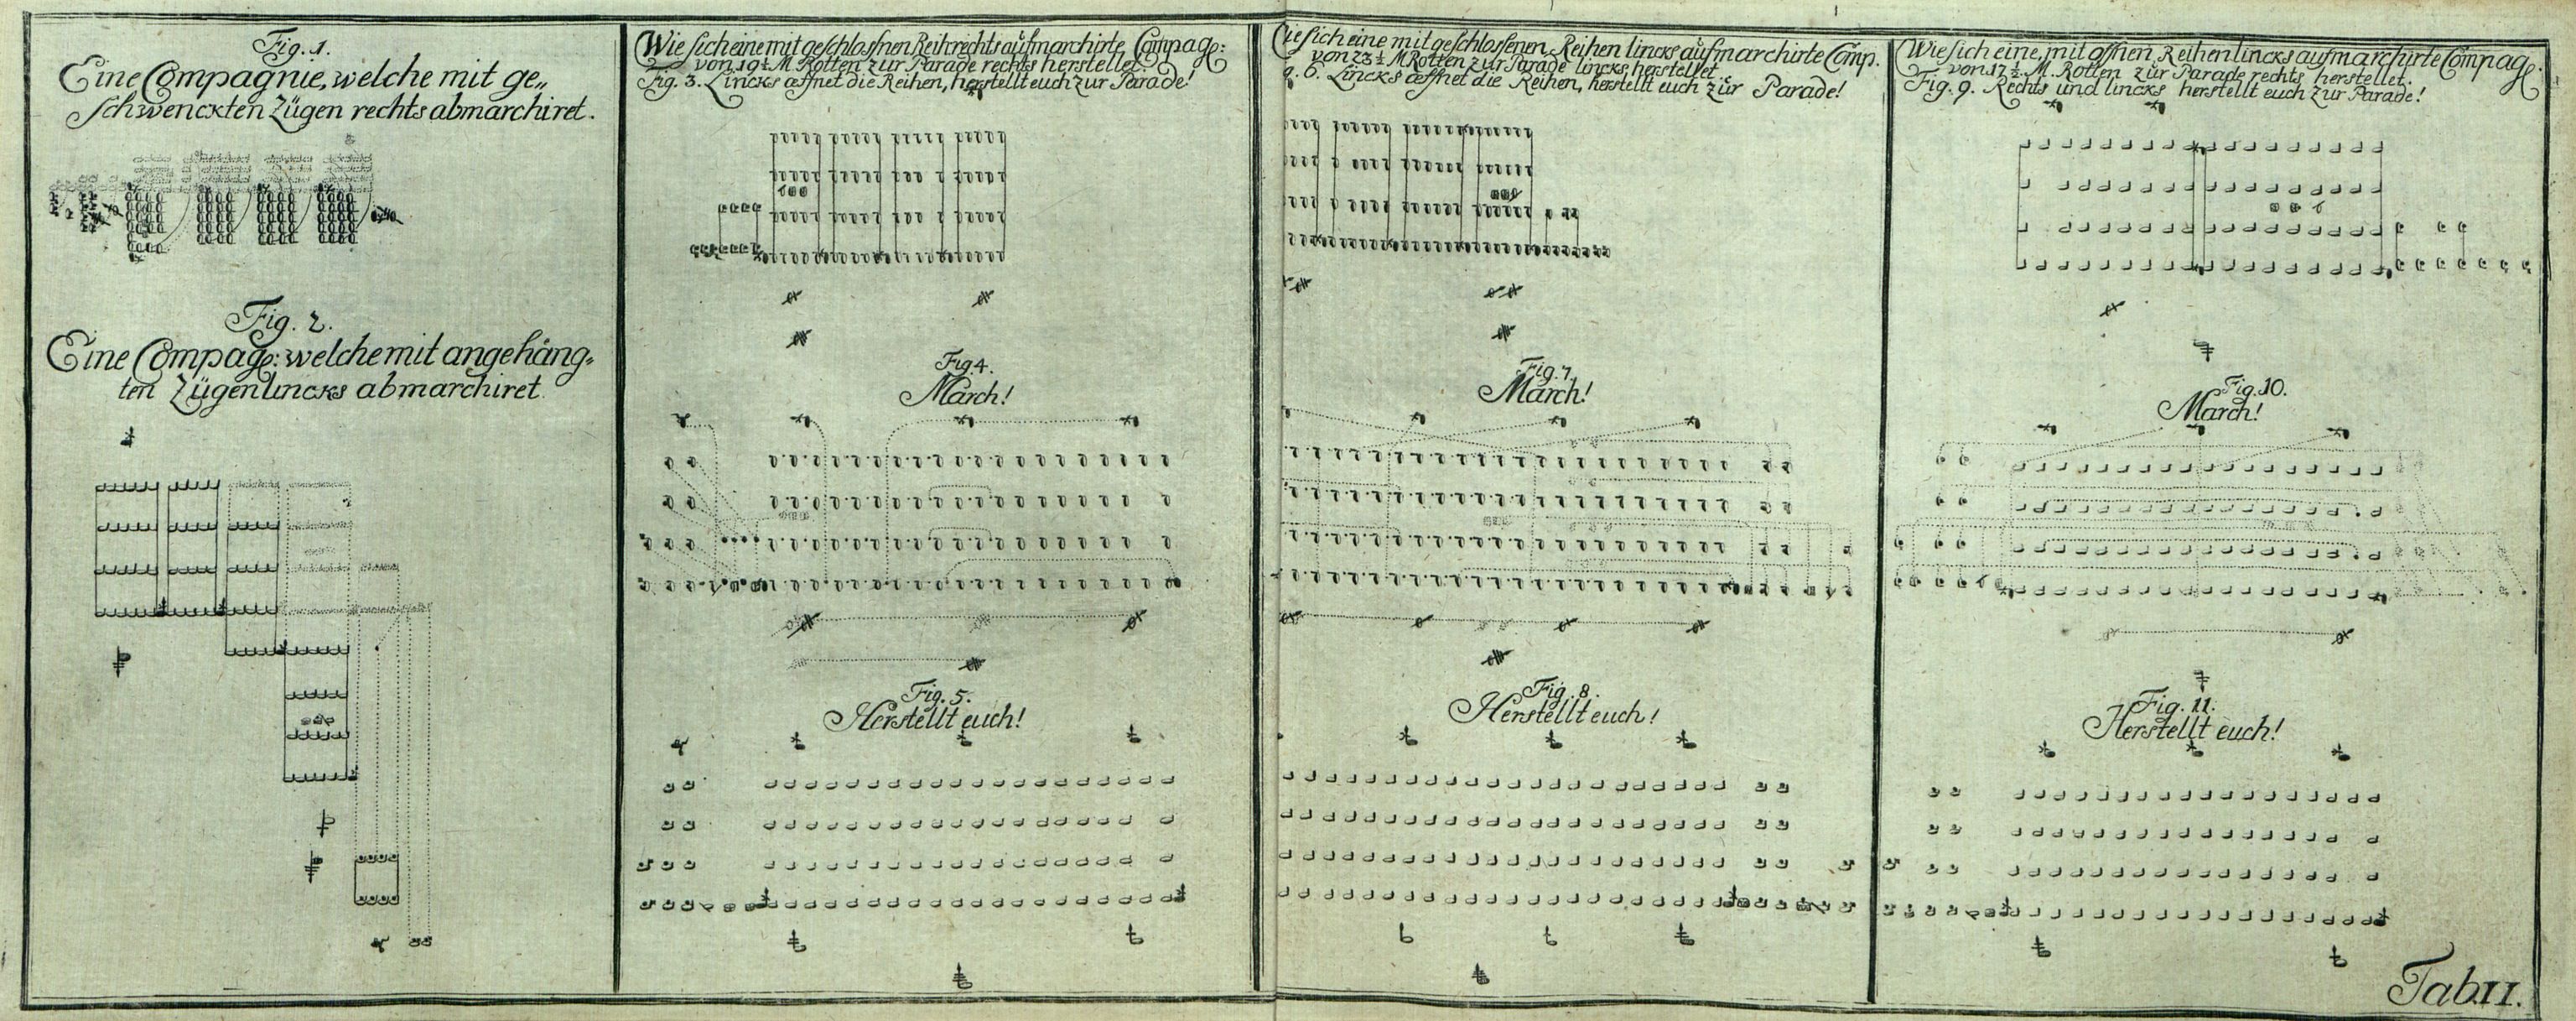 Fig. 1.
Eine Compagnie, welche mit ge„
Schwenckten Zügen rechts abmarchiret.
Fig. 2.
Eine Compag: welche mit angehäng„
ten Zügen lincks abmarchiret
Wie sich eine mit geschlossnen Reih rechts aufmarchirte Compag:
von 19½ M. Rotten zur Parade rechts herstellet
Fig. 3. Lincks œffnet die Reihen, herstellt euch zur Parade!
Fig. 4.
March!
Fig. 5.
Herstellt euch!
ie sich eine mit geschlossenen Reihen lincks aufmarchirte Comp.
von 23½ M Rotten zur Parade lincks herstellet.
g. 6. Lincks œffnet die Reihen, herstellt euch zür Parade!
Fig. 7.
March!
Fig. 8.
Herstellt euch!
Wie sich eine, mit offnen Reihen lincks aufmarchirte Compag:
von M. Rotten zür Parade rechts herstellet.
Fig. 9. Rechts und lincks herstellt euch zur Parade!
Fig. 10.
March!
Fig. 11.
Herstellt euch!
Tab. II.